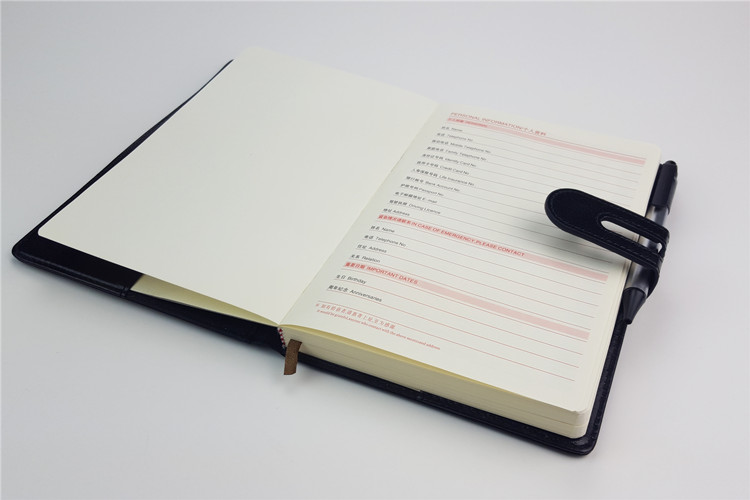 PERSONAL INFORMATION 个人资料
个人资料 PERSONAL
姓名 Name
电话 Telephone No.
移动电话 Mobile Telephone No.
家庭电话 Family Telephone No.
身份证号码 Identity Card No.
信用卡号码 Credit Card No.
人寿保险号码 Life Insurance No.
银行帐号 Bank Account No.
护照号码 Passport No.
电子邮箱地址 E-mail
驾驶执照 Driving Licence
地址 Address
IN CASE OF EMERGENCY PLEASE CONTACT
姓名 Name
电话 Telephone No.
地址 Address
关系 Relation
重要日期 IMPORTANT DATES
生日 Birthday
周年纪念 Anniversaries